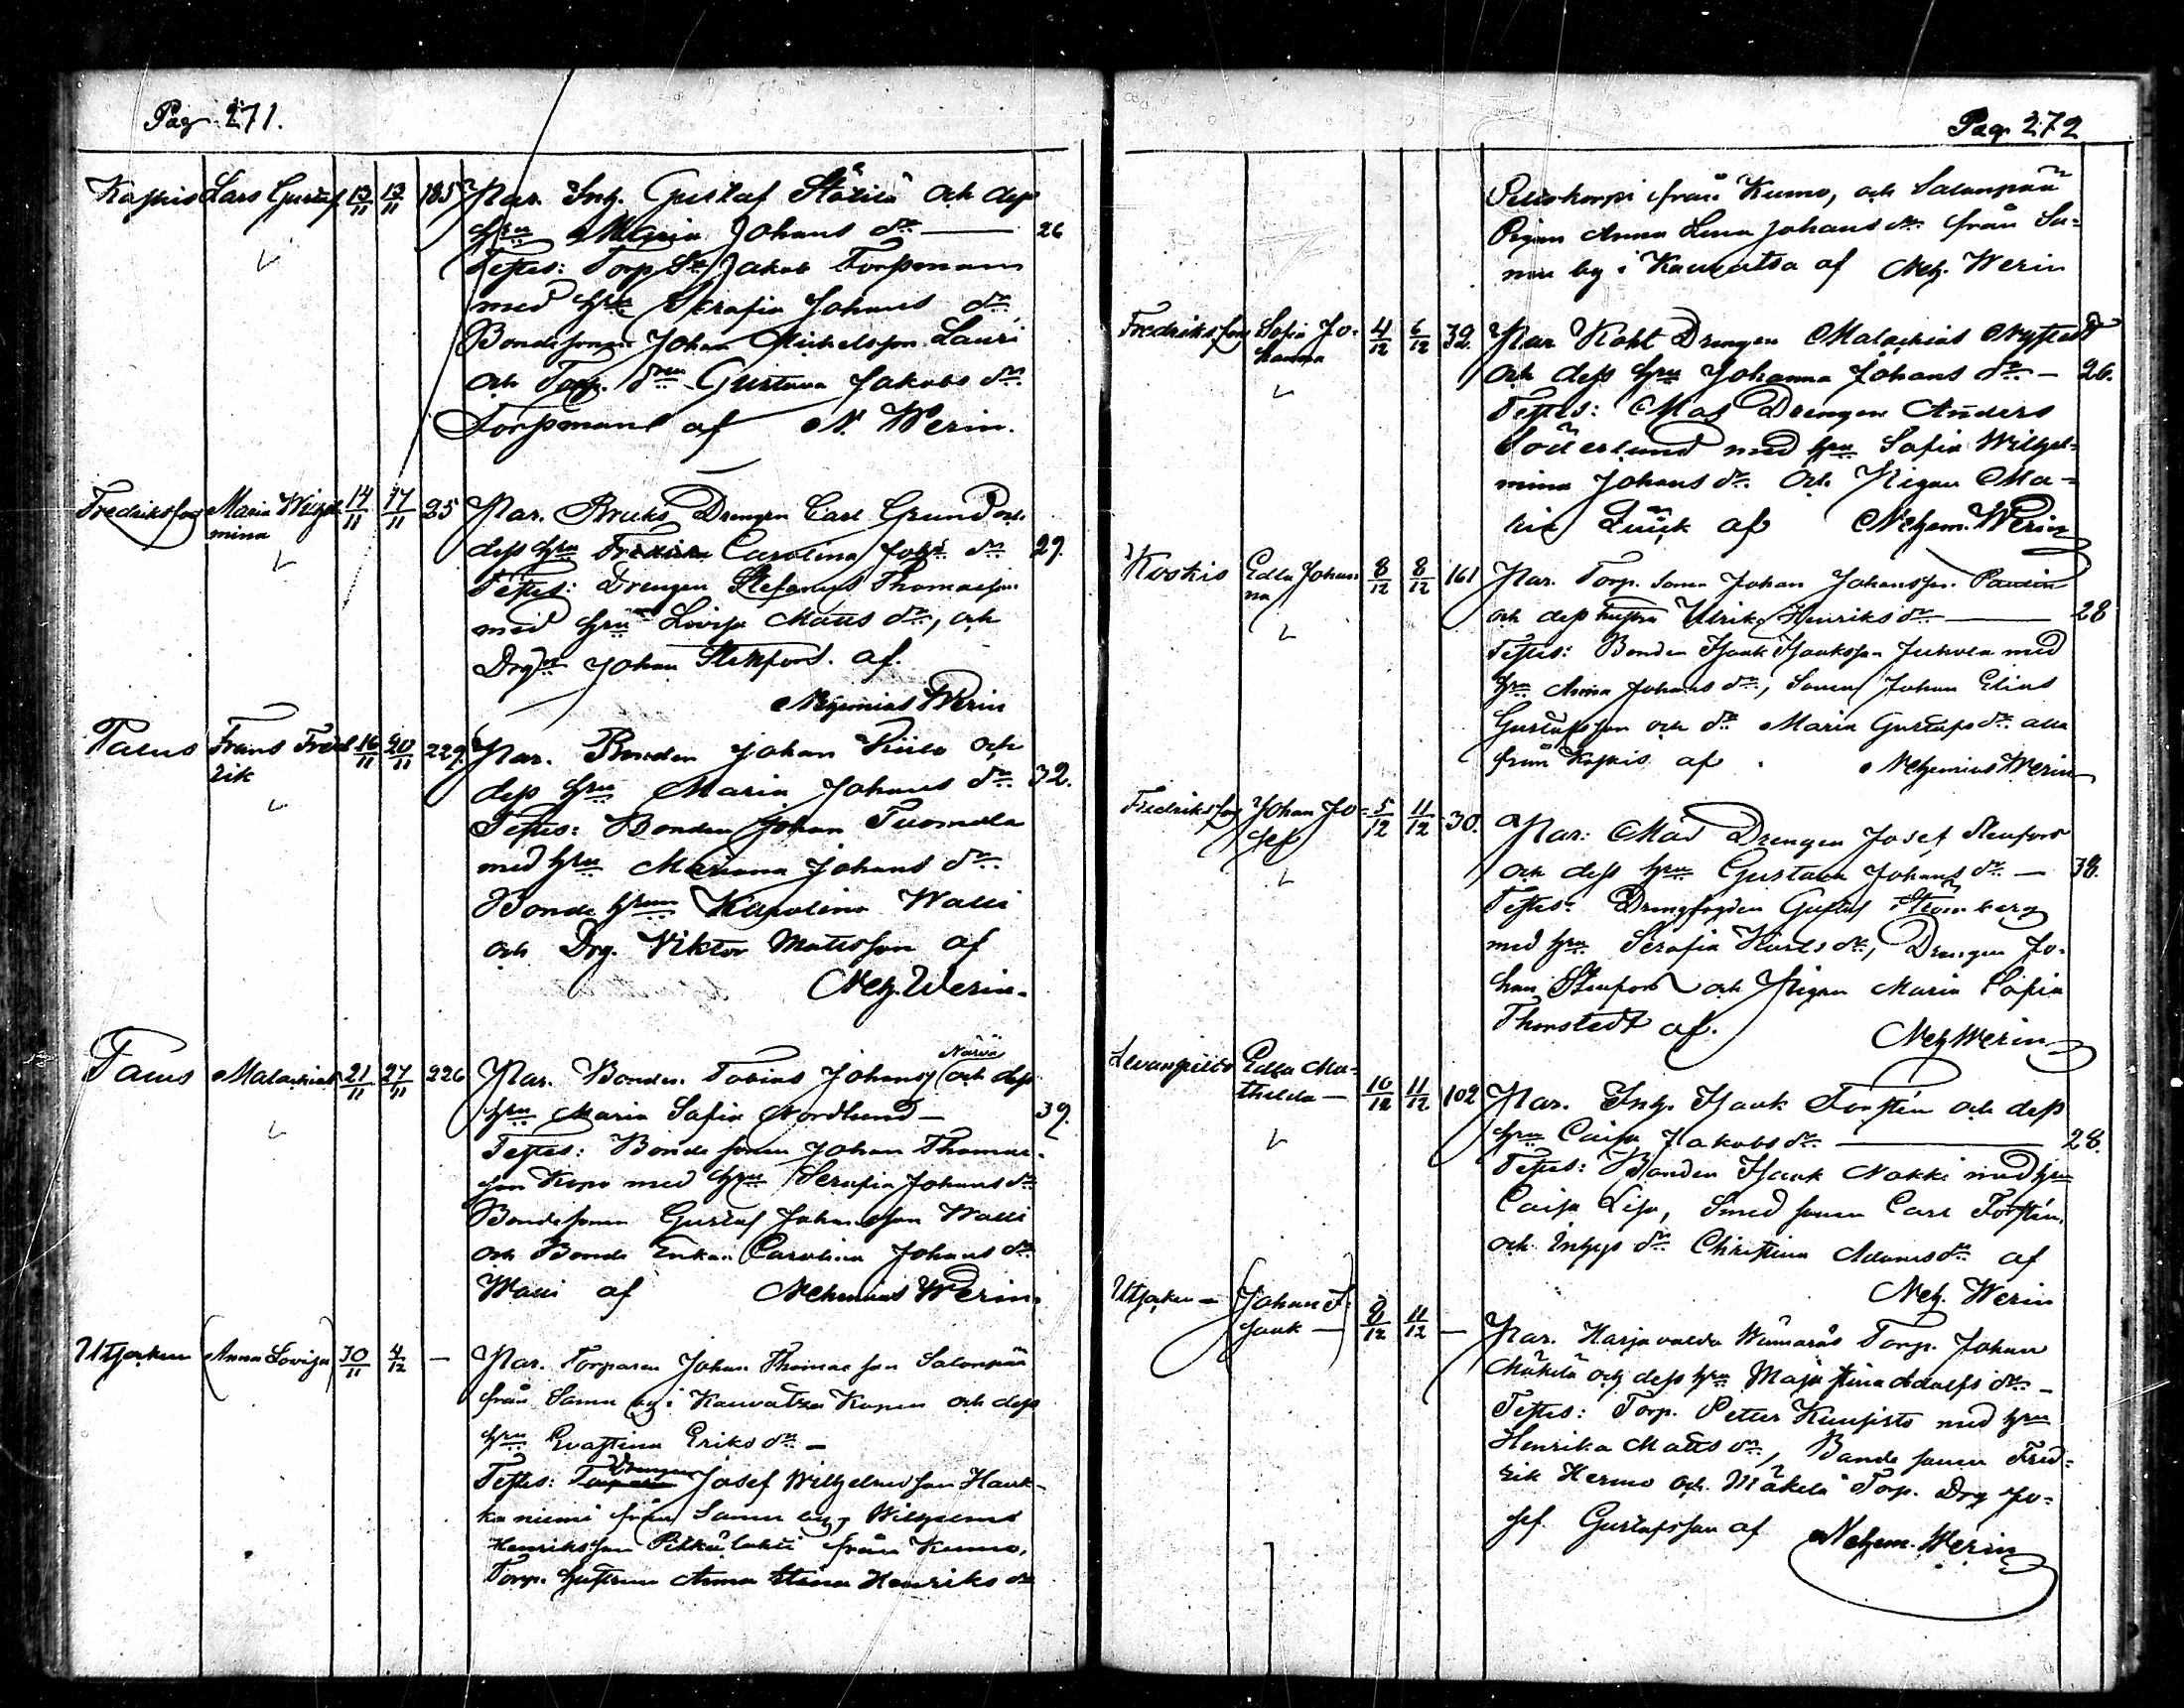 Pag. 271.
Kaskis Lars Gustaf 13/11 13/11 185 Par. Inh. Gustaf Ståtila och dess
hru Maria Johans dr — 26
Testes: Torp. Sn Jakob Forssman
med hru Serafia Johans dr
Bondesonen Johan Michelsson Lauri
och Torp. drn Gustava Jakobs dr
Forssman af N. Werin.
Fredriksfors Maria Wilhel 14/11 17/11 25 Par. Bruks Drengen Carl Grund och
mina dess hru Carolina Johs dr 29
Testes: Drengen Stefanus Thomasson
med hru Lovisa Matts dr, och
Drgn Johan Stenfors. af.
Nehemias Werin
Taeus Frans Fred 16/11 20/11 229 Par. Bonden Johan Kiilo och
rik dess hru Maria Johans dr 32.
Testes: Bonden Johan Tuomola
med hru Mariana Johans dr
Bonde hrun Karolina Walli
och Drg. Viktor Mattsson af
Neh. Werin.
Närvä
Taeus Malachias 21/11 27/11 226 Par. Bonden Tobias Johans och dess
hru Maria Sofia Nordlund — 39.
Testes: Bonde sonen Johan Thomas-
son Kopo med hru Serafia Johans dr
Bondesonen Gustaf Johansson Walli
och Bonde Enkan Carolina Johans dr
Walli af Nehemias Werin.
Utsoknen (Anna Lovisa) 30/11 4/12 — Par. Torparen Johan Thomasson Salonpää
från Samu by i Kauvatsa Kapell och dess
hru Evastina Eriks dr —
Drengen
Testes: Torparen Josef Wilhelmsson Hauk-
kaniemi från Samu by, Wilhelms
Henriksson Pitkälahti från Kumo,
Torp. hustrun Anna Stina Henriks dr
Pag. 272
från Kumo, och Salonpää
Pigan Anna Lena Johans dr från Sa-
mu by i Kauvatsa af Neh. Werin
Fredriksfors Sofia Jo- 4/12 6/12 32. Par Kakt Drengen Malachias Nystedt
hanna och dess hru Johanna Johans dr — 26.
Testes: Mas Drengen Anders
Söderlund med hru Sofia Wilhel-
mina Johans dr och Pigan Ma-
ria af Nehem. Werin
Koskis Edla Johan 8/12 8/12 161 Par. Torp. sonen Johan Johansson
na och dess hustru Ulrika Henriks dr — 28
Testes: Bonden Isaak Isaksson Juhola med
hru Anna Johans dr, Sonen Johan Elias
Gustafsson och dr Maria Gustafs dr alla
från Kaskis af Nehemias Werin
Fredriksfors Johan Jo- 5/12 11/12 30. Par: Mas Drengen Josef Stenfors
sef och dess hru Gustava Johans dr — 38.
Testes: Drengfogden Gustaf Strömberg
med hru Serafia Karls dr, Drengen Jo-
han Stenfors och Pigan Maria Sofia
Thorstedt af. Neh Werin
Levanpelto Edla Ma- 10/12 11/12 102 Par. Inh. Isaak Forstén och dess
thilda — hru Caisa Jakobs dr — 28.
Testes: Bonden Isaak Nokki med hru
Caisa Lisa, Smed sonen Carl Forstén
och Inhys dr Christina Adams dr af
Neh. Werin
Utsoknen — (Johan I- 8/12 11/12 — Par. Harjavalda Wannarås Torp. Johan
saak —) Mäkelä och dess hru Maja Stina Adolfs dr —
Testes: Torp. Petter Kuusisto med hru
Henrika Matts dr, Bonde sonen Fred-
rik Hermo och Mäkelä Torp. Drg Jo-
sef Gustafsson af Nehem. Werin